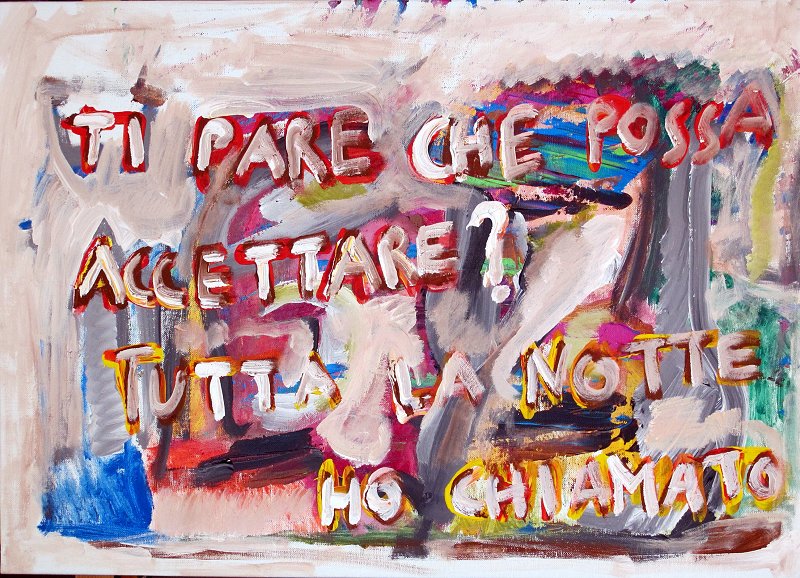 TI PARE CHE POSSA
ACCETTARE?
TUTTA LA NOTTE
HO CHIAMATO